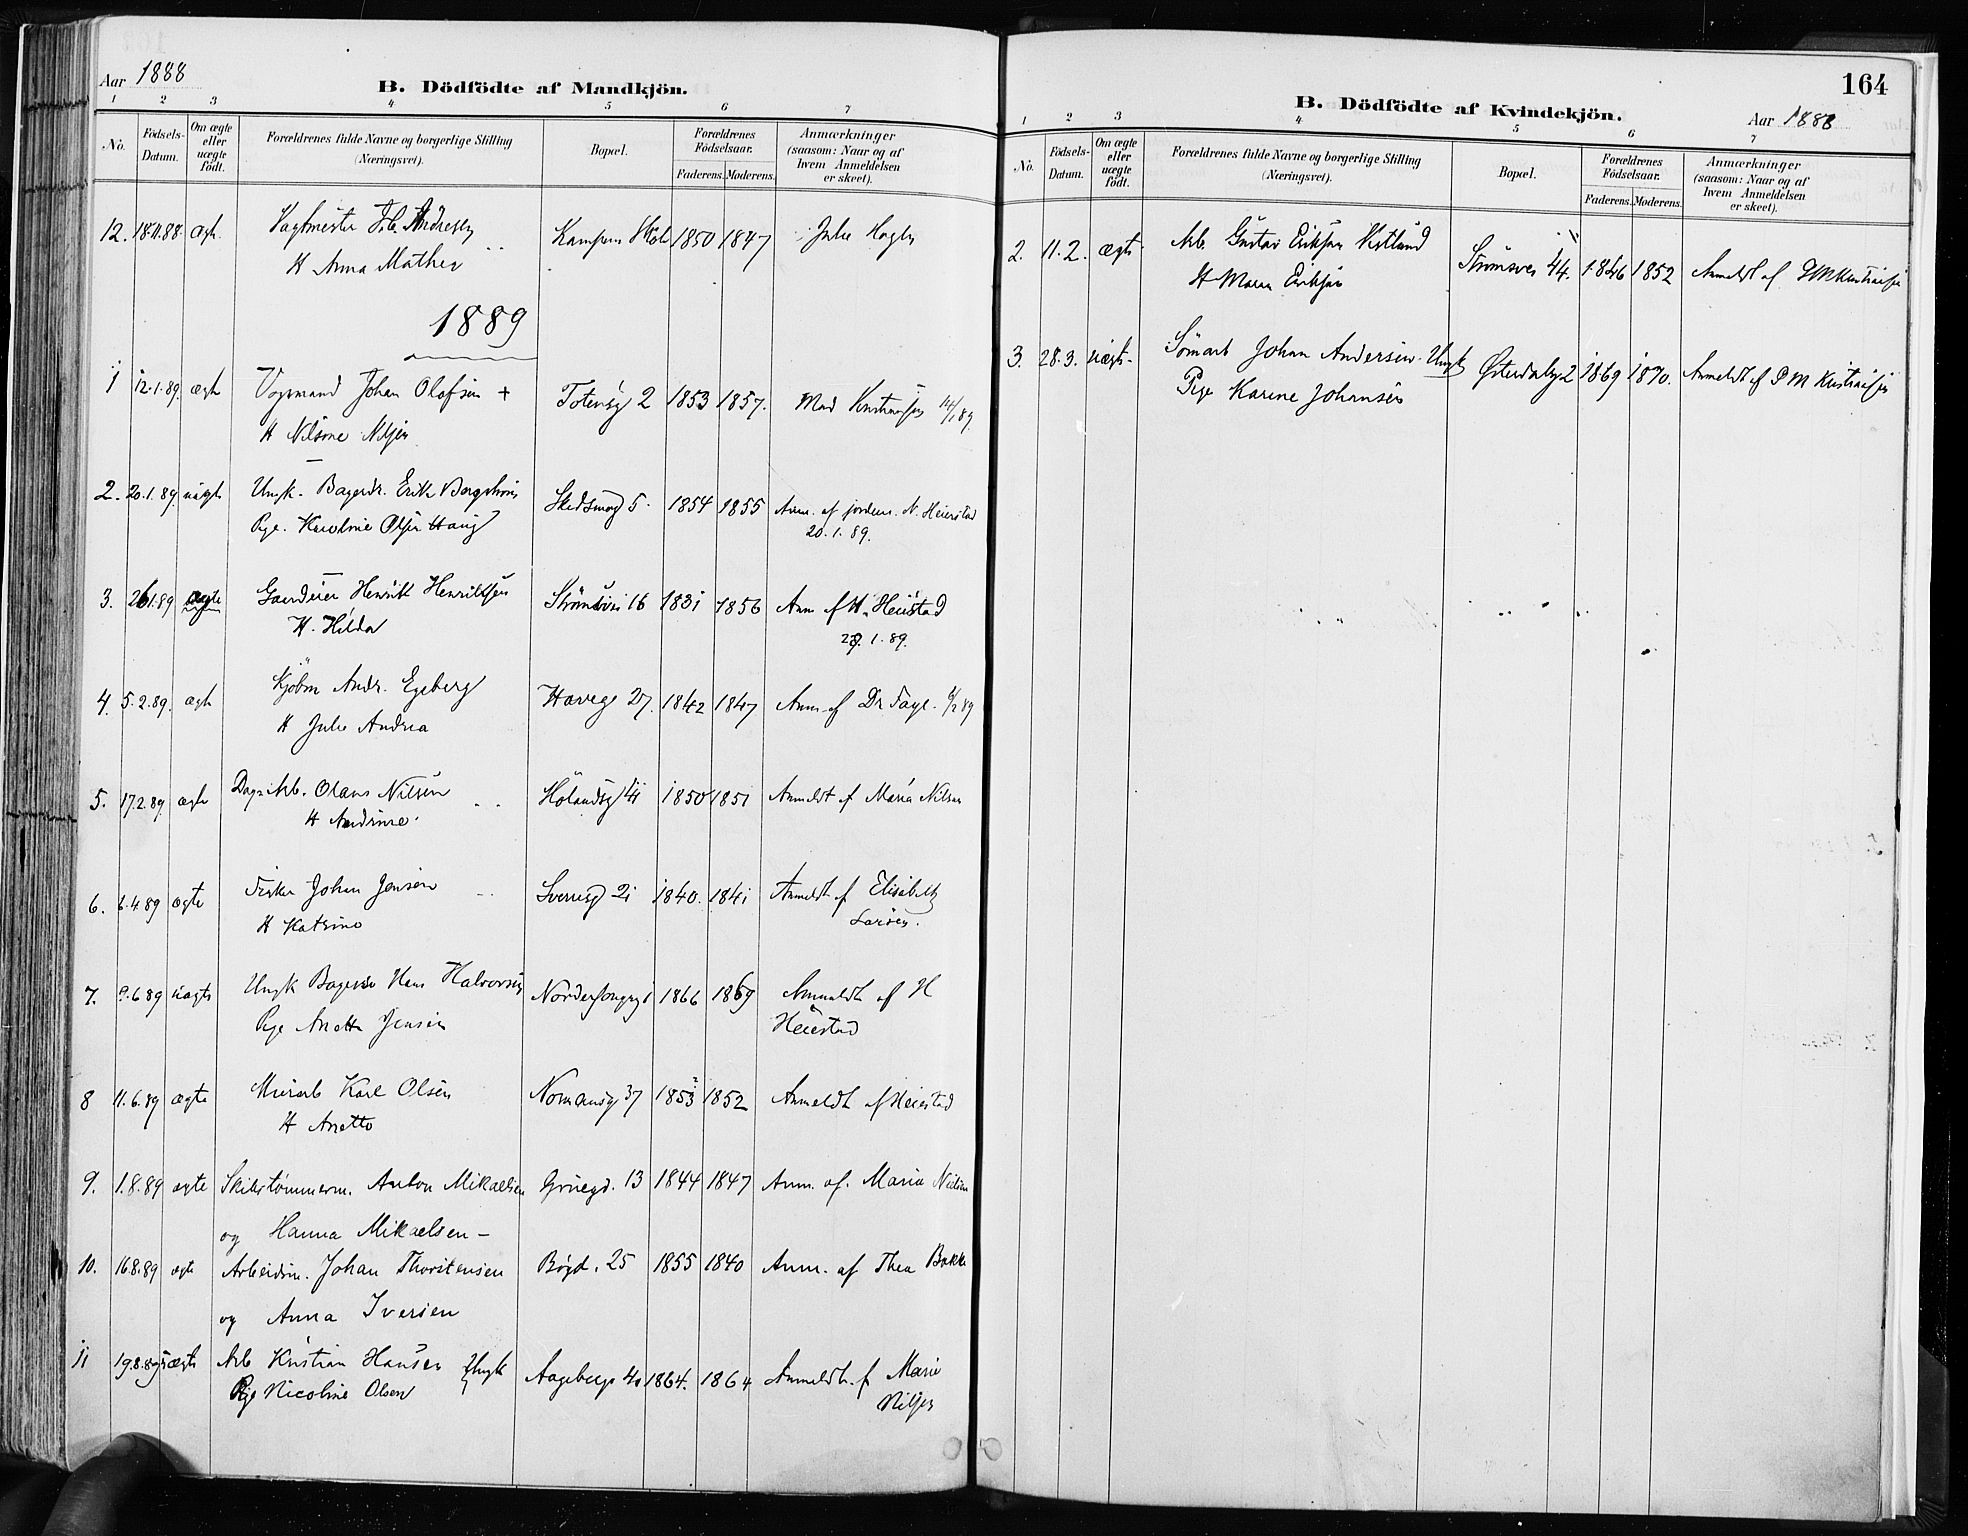 Aar 1888
B. Dödfödte af Mandkjön.
1 2 3 4 5 6 7
No. Födsels-Datum. Om ægte eller uægte födt. Forældrenes fulde Navne og borgerlige Stilling (Næringsvei). Bopæl. Forældrenes Födselsaar. Faderens. Moderens. Anmærkninger (saasom: Naar og af hvem Anmeldelsen er skeet).
12. 18.11.88. Ægt. Vagtmester Andresen 1850 1847 Julie
H Anna
1889
1 12.1.89. ægte Vognmand Johan Olafsen + Totensg 2 1853 1857. Mad 14/1 89.
H Nilsine
2. 20.1.89. uægte Ungk. Erik Skedsmog 5. 1854 1855 Anm. af jordem. N. Heierstad
Pige. Karoline Olsen Haug 20.1.89.
3. 26.1.89 ægte Henrik Henriksen Strömsvei 16 1831 1856 Anm af H. Heiestad
H. Hilda 29.1.89.
4. 5.2.89. ægte Kjöbm Andr. Egeberg 27. 1842 1847 Anm af Dr Faye. 6/2 89
H Julie Andrea
5. 17.2.89. ægte Olaus Nilsen Hölandsg 1850 1851 Anmeldt af Maria Nilsen
H Andrine.
6. 6.4.89 ægte Johan Jensen Sverresg 21 1840. 1841 Anmeldt af Elisabeth
H Katrine Larsen.
7. 9.6.89 uægte Ungk Hans Halvorsen 1866 1869 Anmeldt af H
Pige Anette Jensen Heiestad
8 11.6.89 ægte Murarb Karl Olsen Normansg 37 1853 1852 Anmeldt af Heiestad
H Anette
9. 1.8.89 ægte Skibstømmerm. Anton Mikaelsen Grüegd. 13 1844 1847 Anm. af. Maria Nielsen
og Hanna Mikaelsen –
10. 16.8.89 ægte Arbeidsm. Johan Thorstensen Bögd. 25 1855 1840 Anm. af Thea Bakke
og Anna Iversen
11 19.8.89 uægte Arb Kristian Hansen Ungk Aagebergv 40 1864. 1864 Anmeldt. af Marie
Pige Nicoline Olsen Nilsen
164
B. Dödfödte af Kvindekjön.
Aar 1888
1 2 3 4 5 6 7
No. Födsels-Datum. Om ægte eller uægte födt. Forældrenes fulde Navne og borgerlige Stilling (Næringsvei). Bopæl. Forældrenes Födselsaar. Faderens. Moderens. Anmærkninger (saasom: Naar og af hvem Anmeldelsen er skeet).
2. 11.2. ægte Arb. Gustav Eriksen Strömsvei 44. 1846 1852 Anmeldt af
H Maren Eriksen
3. 28.3. uægte. Johan Andersen. Ungk Østerdalsg 2 1869 1870. Anmeldt af P M Kristiansen
Pige Karine Johansen